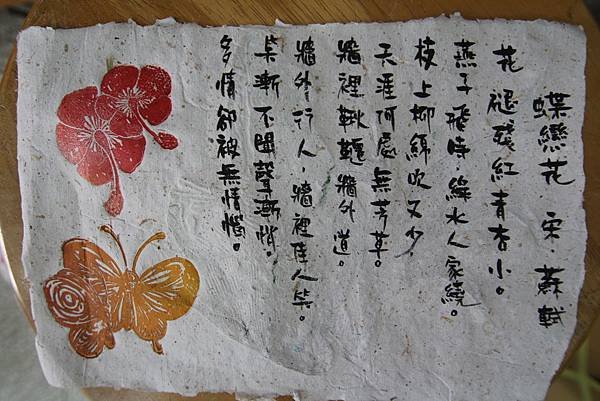 蝶戀花 宋.蘇軾
花褪殘紅青杏小。
燕子飛時綠水人家繞。
枝上柳綿吹又少，
天涯何處無芳草。
牆裡鞦韆牆外道。
牆外行人，牆裡佳人笑。
笑漸不聞聲漸悄。
多情卻被無情惱。